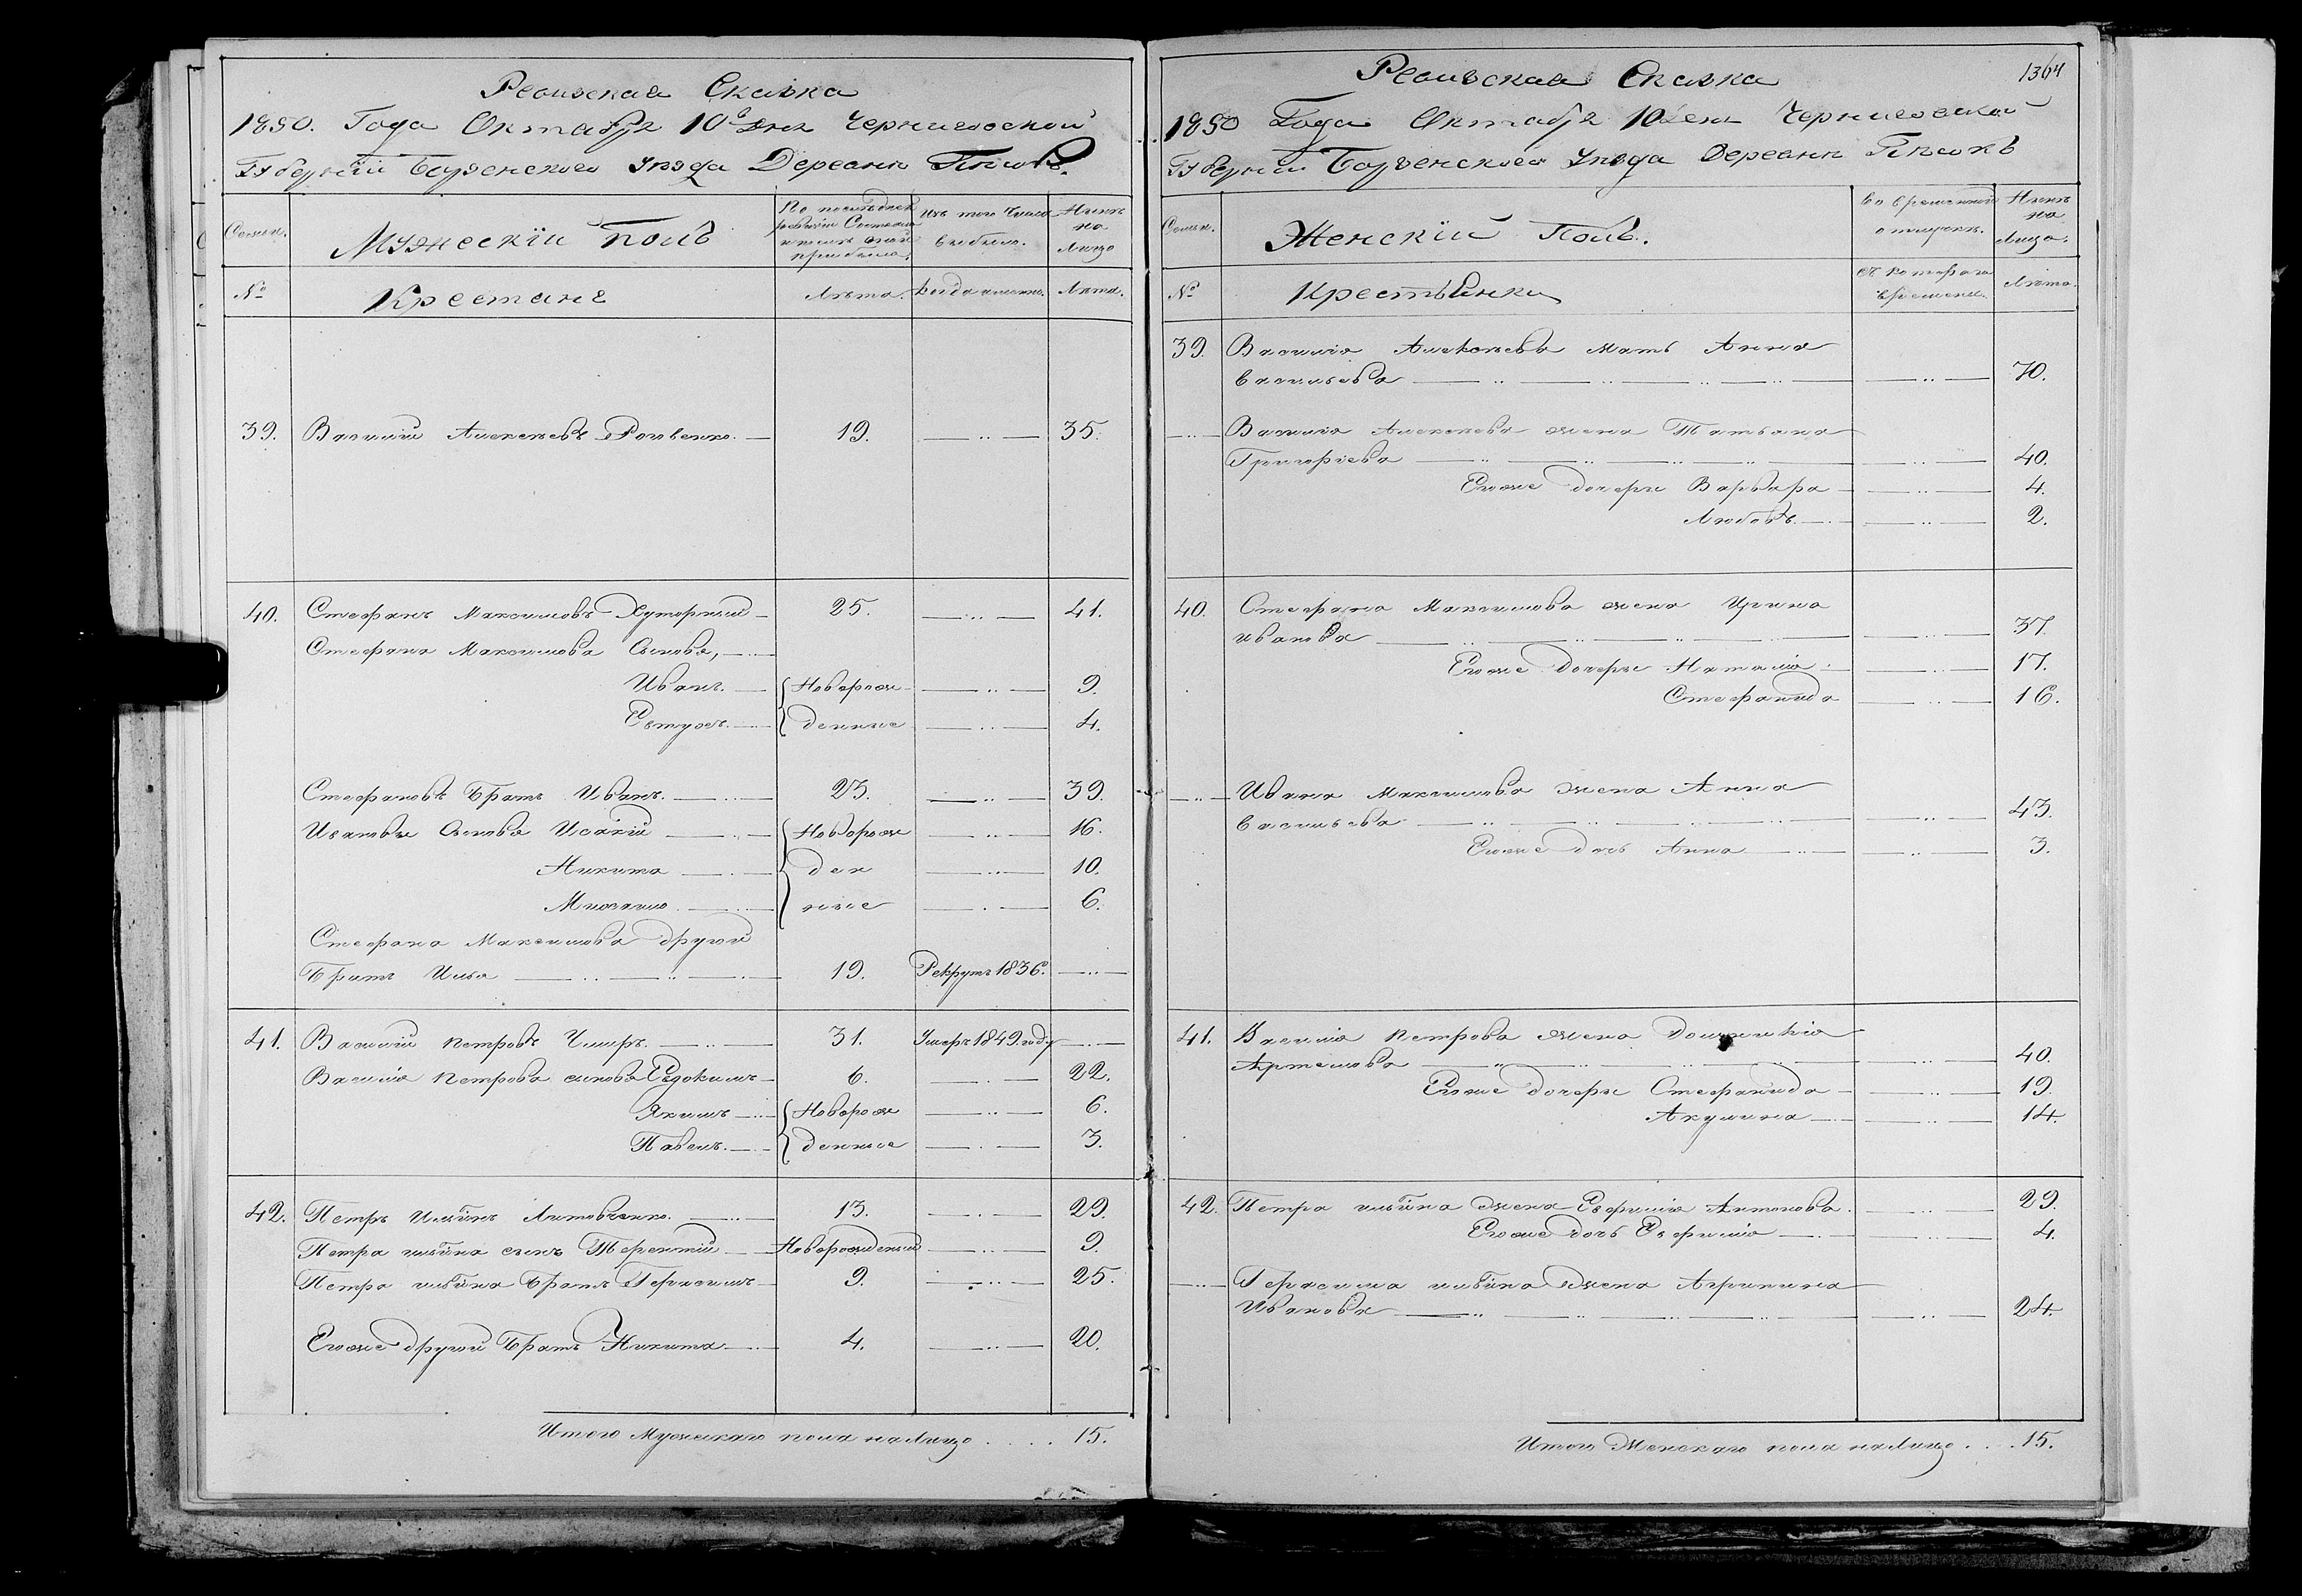 Ревизская Сказка
1850. Года Октября 10 дня Черниговской
Губерніи Борзенского Уѣзда Деревни Пѣсокъ.
Семьи.
Мужескій Полъ
По последней ревизіи Состояло и послѣ оной прибыло.
Изъ того Числа выбыло.
Нынѣ на Лицо
№
Крестьяне
Лѣта.
Когда именно.
Лѣта.
39. Василий Алексѣевъ Роговенко. 19. 35.
40. Стефанъ Максимовъ Хуторный 25. 41.
Стефана Максимова Сыновья,
Иванъ. Новорож 9.
Евтухъ. денные 4.
Стефановъ Братъ Иванъ. 23. 39.
Ивановы Сыновья Исакій Новорож 16.
Никита ден 10.
Михаило ные 6.
Стефана Максимова другой
Братъ Илья 19. Рекрутъ 1836.
41. Василій Петровъ Чмиръ. 31. Умеръ 1849. году
Василія Петрова сыновья Евдокимъ 6. 22.
Якимъ Новорож 6.
Павелъ. денные 3.
42. Петръ Ильинъ Литовченко. 13. 29.
Петра ильина сынъ Терентій Новорожденый 9.
Петра ильина Братъ Герасимъ 9. 25.
Егоже другой Братъ Никита 4. 20.
Итого Мужескаго пола на Лицо .... 15.
Ревизская Сказка
1364
1850 Года Октября 10 дня Черниговской
Губерніи Борзенского Уѣзда Деревни Пѣсокъ
Семьи.
Женскій Полъ.
Во временной отлучкѣ.
Нынѣ на Лицо.
№
Крестьянки
Съ котораго времени.
Лѣта.
39. Василія Алексѣева мать Анна
Васильева 70.
Василія Алексѣева жена Татьяна
Григоріева 40.
Егоже дочери Варвара 4.
Любовь. 2.
40. Стефана Максимова жена Ирина
иванова 37.
Егоже дочери Наталія 17.
Стефанида 16.
Ивана Максимова жена Анна
Васильева 43.
Егоже дочь Анна 3.
41. Василія Петрова жена
Артемова 40.
Егоже дочери Стефанида 19.
Акулина 14.
42. Петра ильина жена Евфимія Антонова. 29.
Егоже дочь Евфимія 4.
Герасима ильина жена Агрипина
Иванова 24.
Итого Женскаго пола на Лицо .... 15.